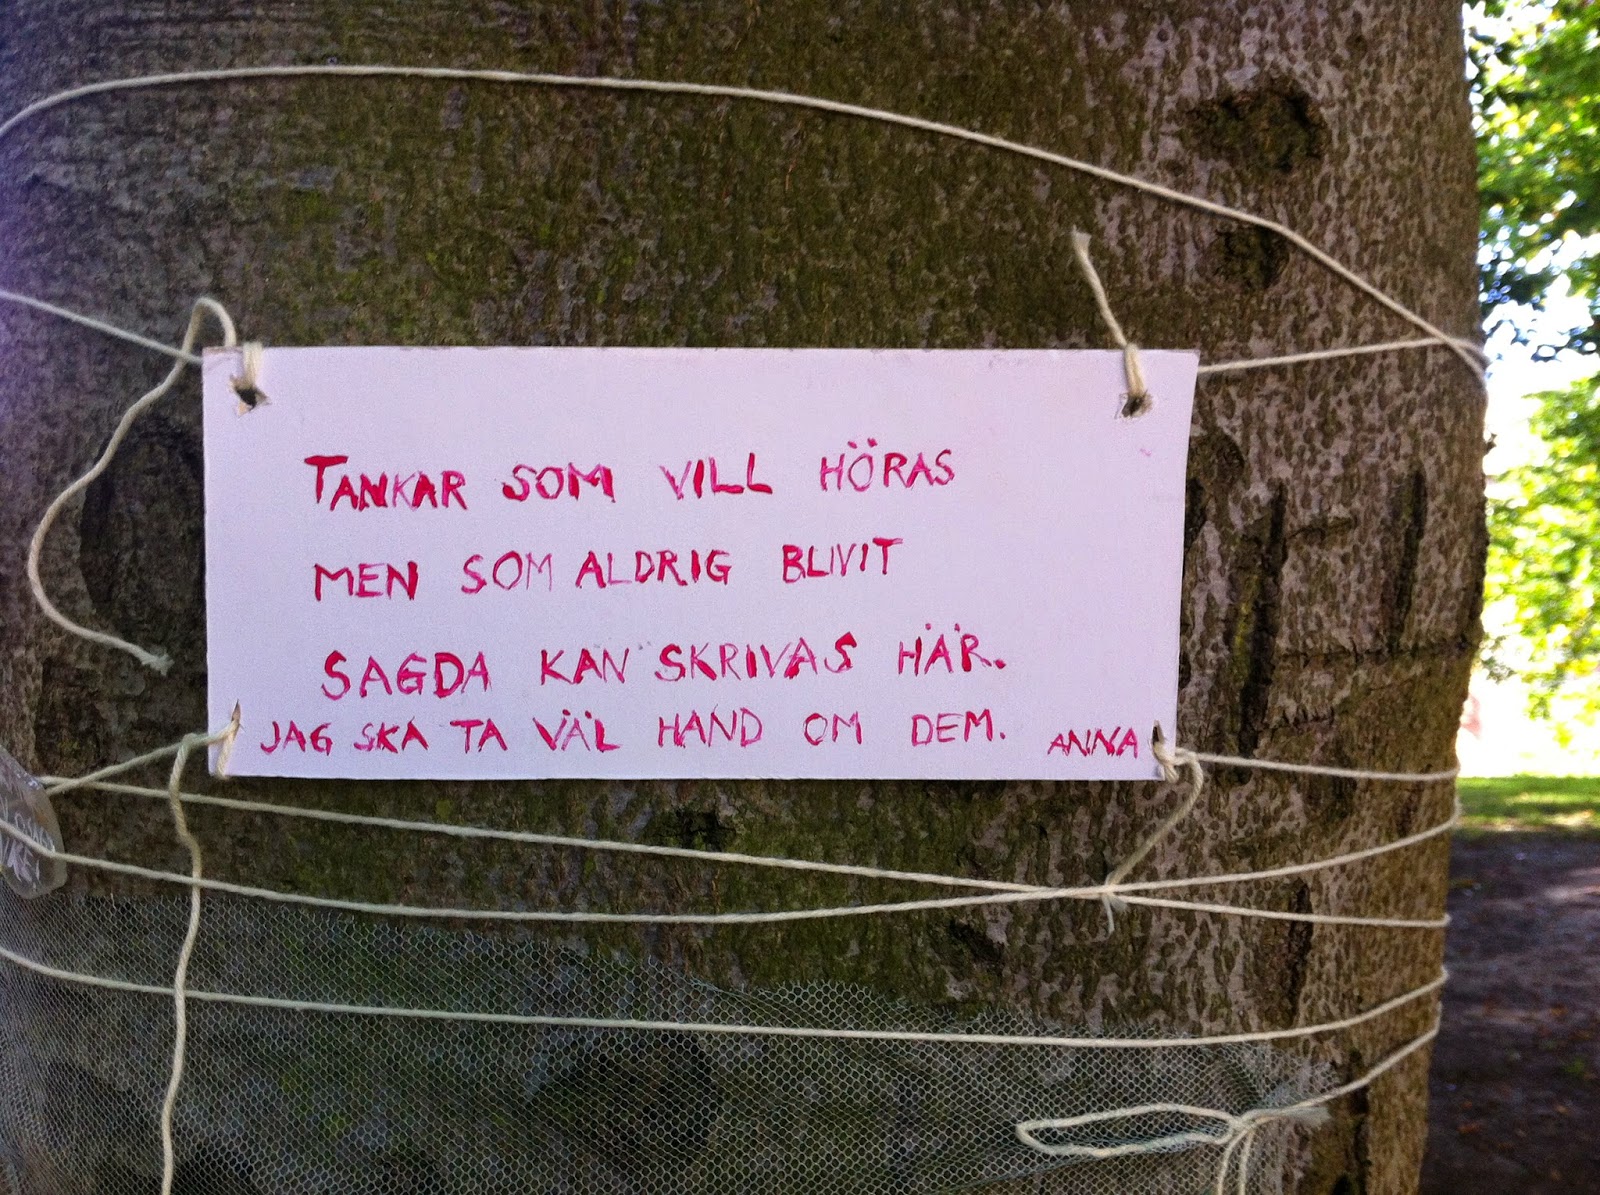 TANKAR SOM VILL HÖRAS
MEN SOM ALDRIG BLIVIT
SAGDA KAN SKRIVAS HÄR.
JAG SKA TA VÄL HAND OM DEM. ANNA